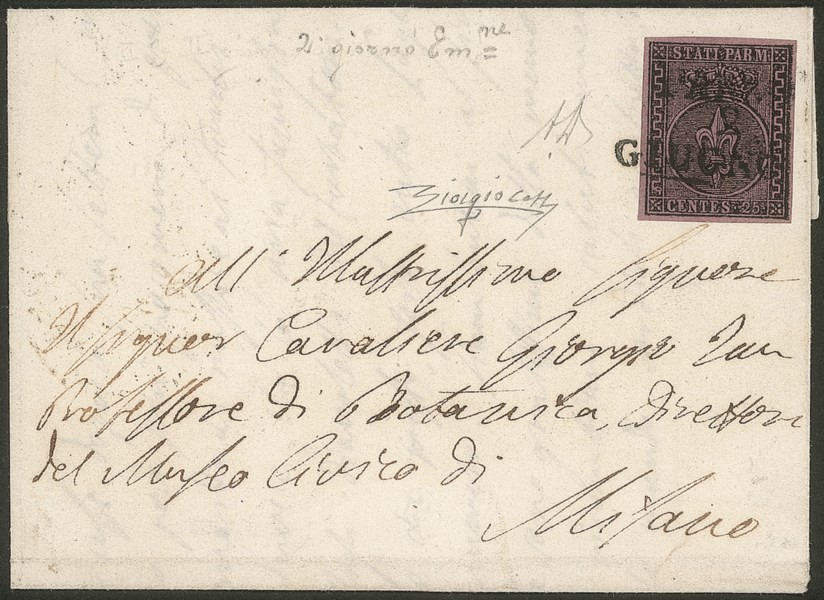 2° giorno Em.ne
STATI PARM.
GIUGNO
CENTES. 25
All' Illustrissimo Signore
Il Signor Cavaliere Giorgio Jan
Professore di Botanica, Direttore
del Museo Civico di
Milano